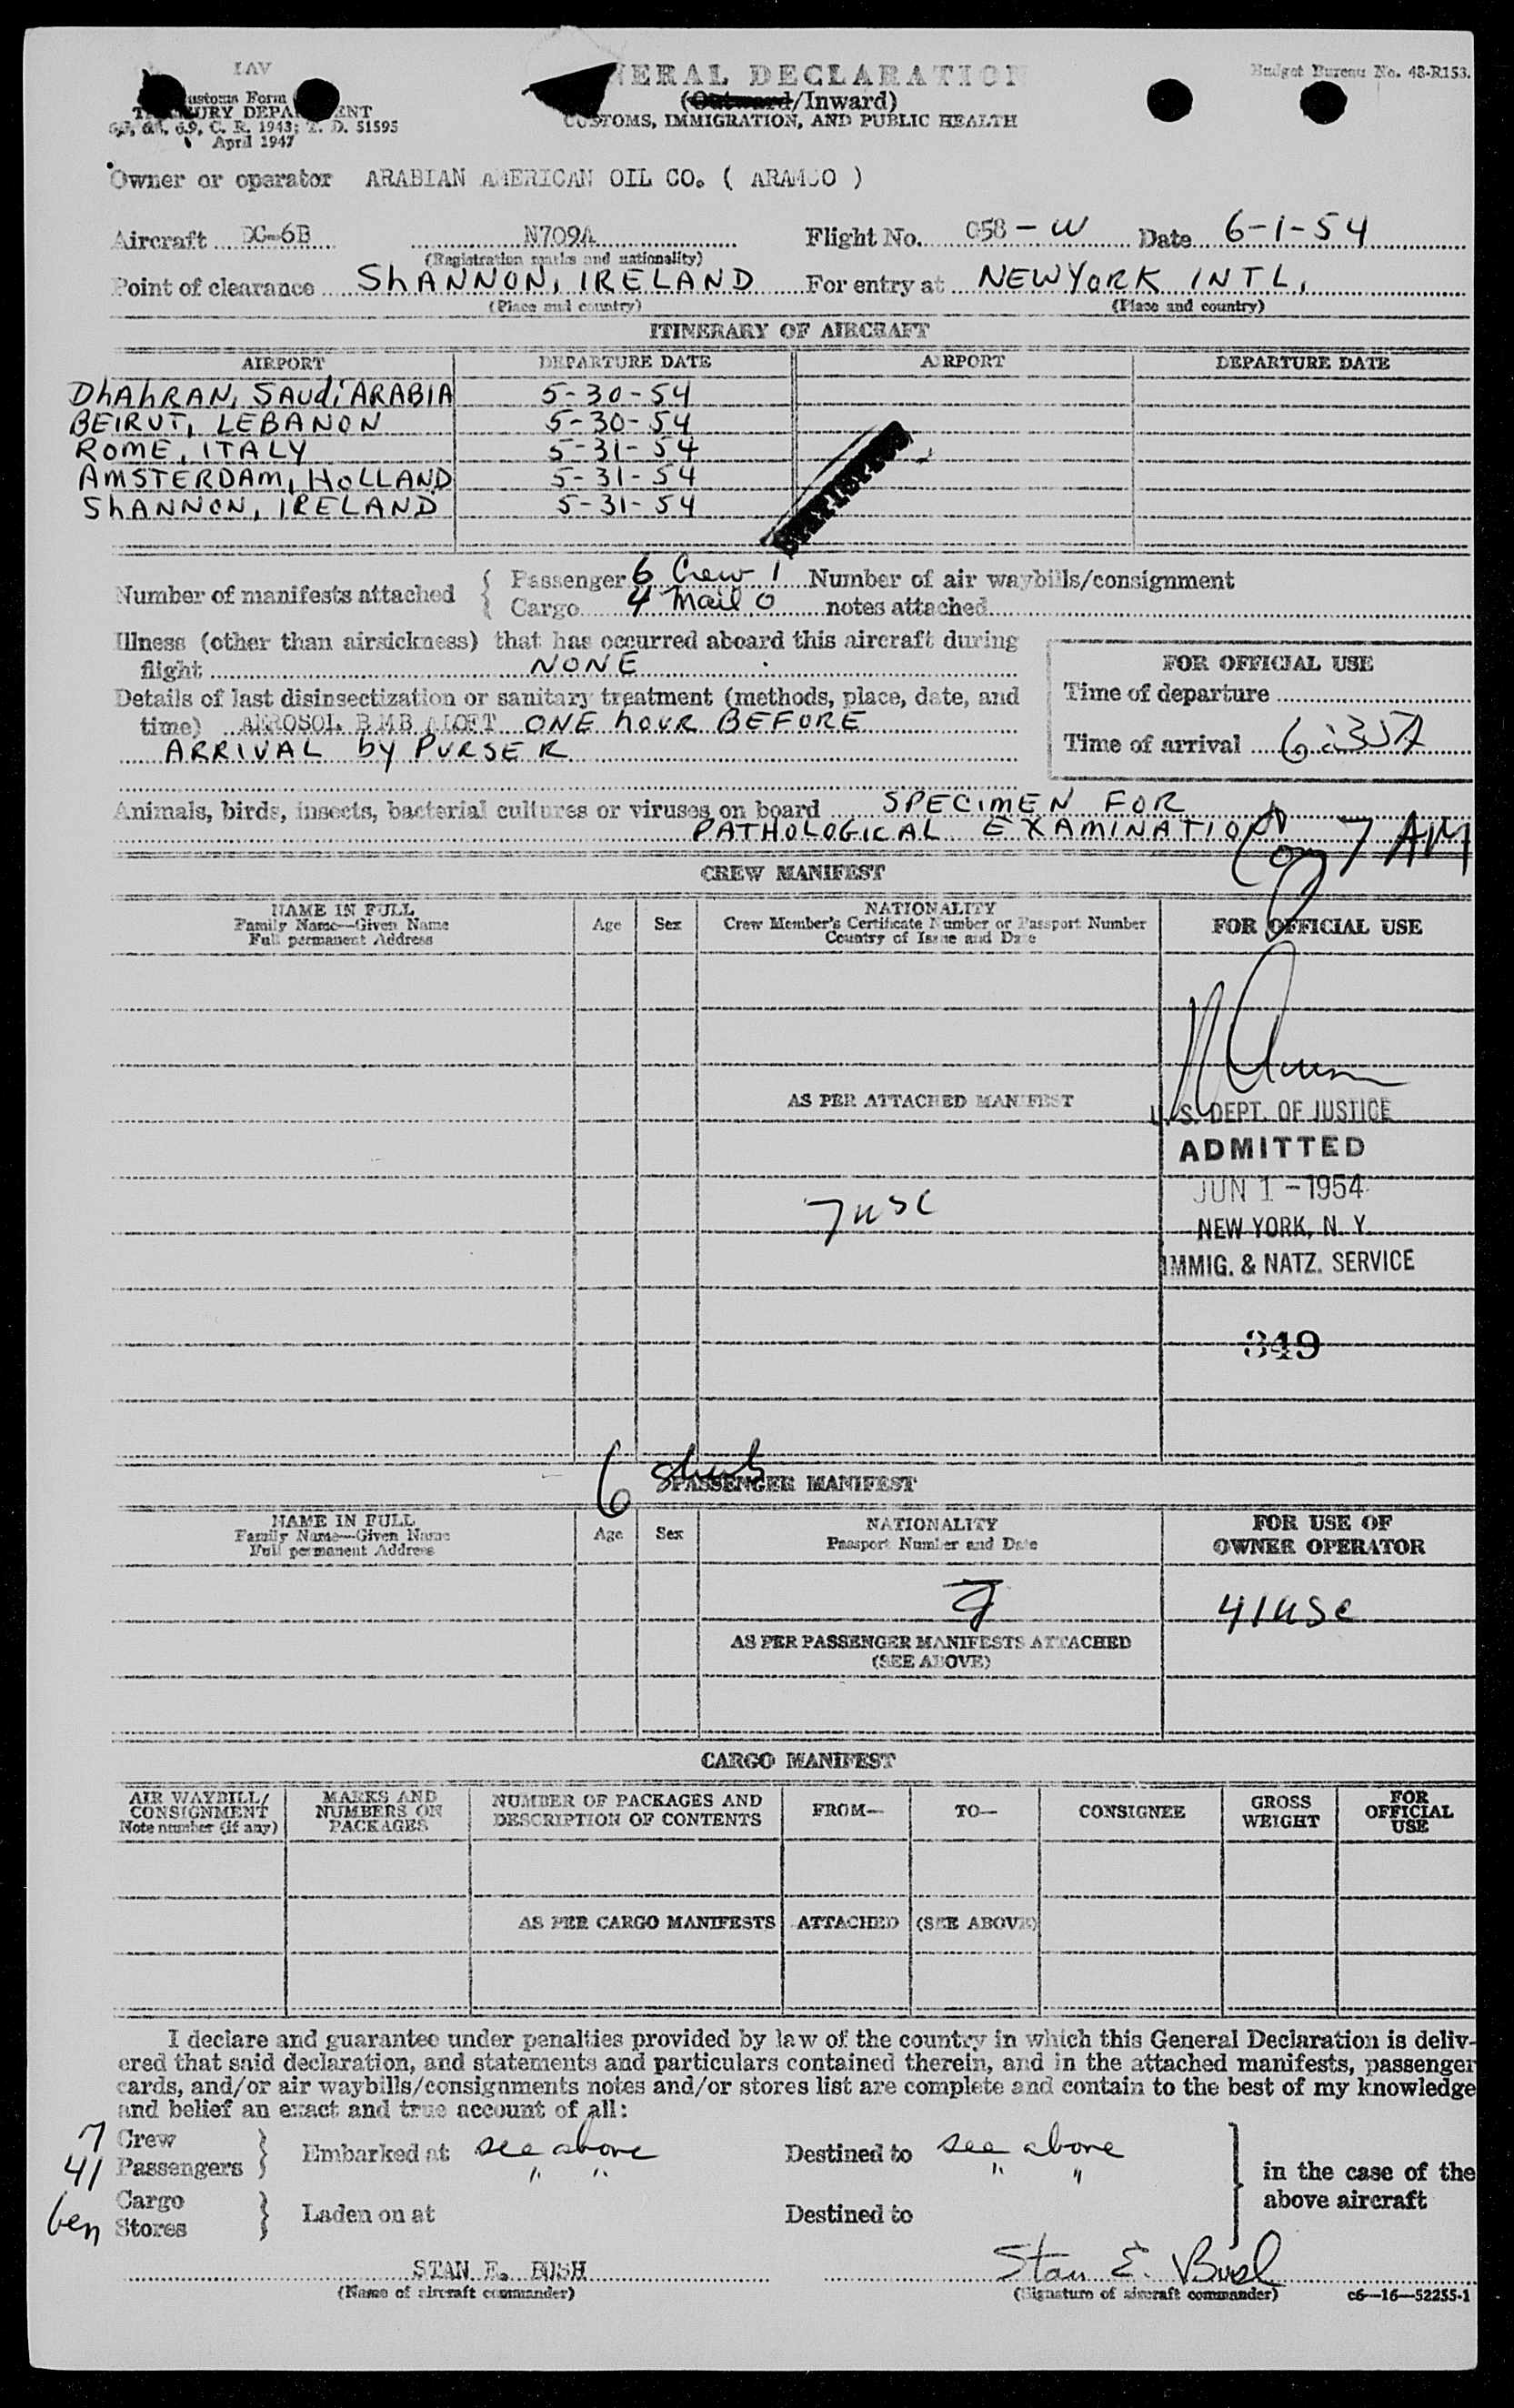 IAV
Customs Form
TREASURY DEPARTMENT
C. R. 1943; T. D. 51595
April 1947
GENERAL DECLARATION
(Outward/Inward)
CUSTOMS, IMMIGRATION, AND PUBLIC HEALTH
Budget Bureau No. 48-R153.
Owner or operator ARABIAN AMERICAN OIL CO. ( ARAMCO )
Aircraft DC-6B N709A Flight No. 058 - W Date 6-1-54
(Registration marks and nationality)
Point of clearance ShANNON, IRELAND For entry at NEW YORK INTL,
(Place and country) (Place and country)
ITINERARY OF AIRCRAFT
AIRPORT DEPARTURE DATE AIRPORT DEPARTURE DATE
DhAhRAN, SAUdi ARABIA 5-30-54
BEIRUT, LEBANON 5-30-54
ROME, ITALY 5-31-54
AMSTERDAM, HOLLAND 5-31-54
ShANNON, IRELAND 5-31-54
Number of manifests attached { Passenger 6 Crew 1 Number of air waybills/consignment
Cargo 4 Mail 0 notes attached
Illness (other than airsickness) that has occurred aboard this aircraft during
flight NONE
Details of last disinsectization or sanitary treatment (methods, place, date, and
time) AEROSOL BMB ALOFT ONE hOUR BEFORE
ARRIVAL by PURSER
FOR OFFICIAL USE
Time of departure
Time of arrival 6:35A
Animals, birds, insects, bacterial cultures or viruses on board SPECIMEN FOR
PATHOLOGICAL EXAMINATION
7 AM
CREW MANIFEST
NAME IN FULL
Family Name—Given Name
Full permanent Address
Age
Sex
NATIONALITY
Crew Member's Certificate Number or Passport Number
Country of Issue and Date
FOR OFFICIAL USE
AS PER ATTACHED MANIFEST
U. S. DEPT. OF JUSTICE
ADMITTED
JUN 1 - 1954
NEW YORK, N. Y.
IMMIG. & NATZ. SERVICE
7 usc
349
6 sheets
PASSENGER MANIFEST
NAME IN FULL
Family Name—Given Name
Full permanent Address
Age
Sex
NATIONALITY
Passport Number and Date
FOR USE OF
OWNER OPERATOR
41 usc
AS PER PASSENGER MANIFESTS ATTACHED
(SEE ABOVE)
CARGO MANIFEST
AIR WAYBILL/
CONSIGNMENT
Note number (if any)
MARKS AND
NUMBERS ON
PACKAGES
NUMBER OF PACKAGES AND
DESCRIPTION OF CONTENTS
FROM—
TO—
CONSIGNEE
GROSS
WEIGHT
FOR
OFFICIAL
USE
AS PER CARGO MANIFESTS ATTACHED (SEE ABOVE)
I declare and guarantee under penalties provided by law of the country in which this General Declaration is deliv-
ered that said declaration, and statements and particulars contained therein, and in the attached manifests, passenger
cards, and/or air waybills/consignments notes and/or stores list are complete and contain to the best of my knowledge
and belief an exact and true account of all:
7 Crew
41 Passengers } Embarked at see above Destined to see above
" " " "
in the case of the
above aircraft
Cargo
Stores } Laden on at Destined to
STAN E. BUSH Stan E. Bush
(Name of aircraft commander) (Signature of aircraft commander) c6—16—52255-1